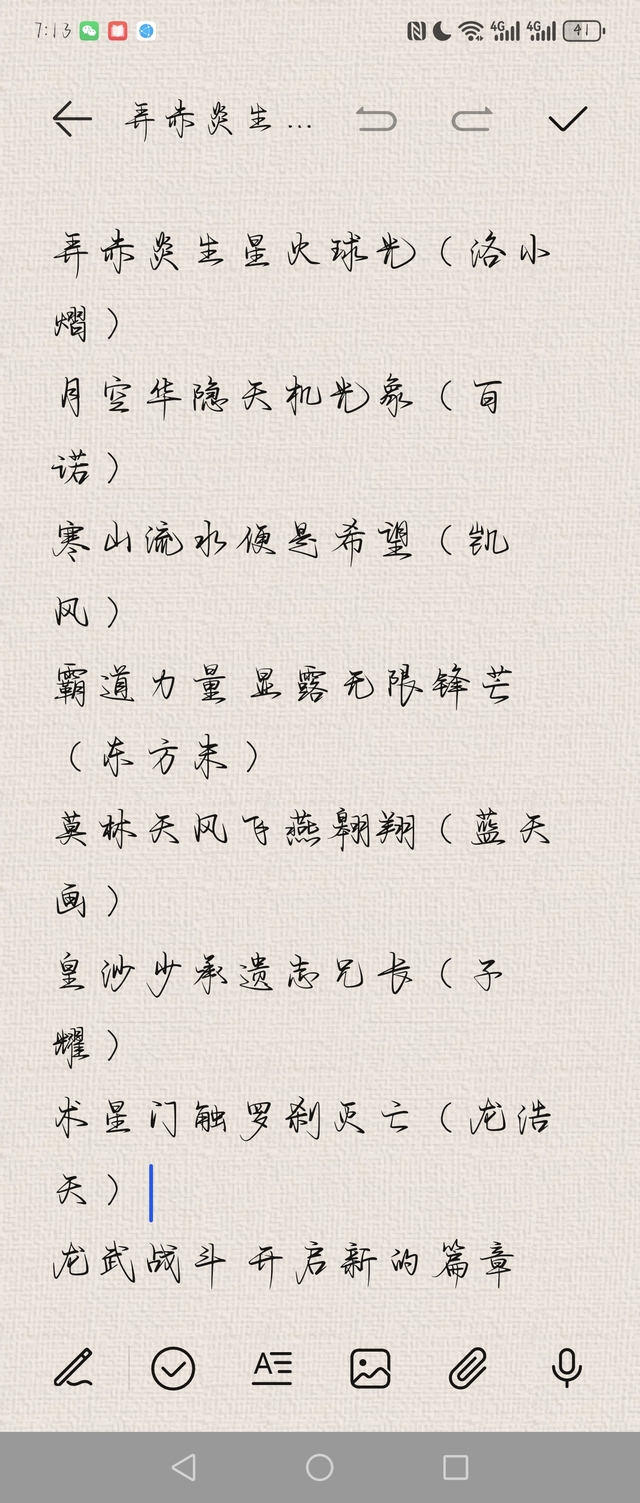 7:13
4G 4G 41
弄赤炎生...
弄赤炎生星火球光（洛小
熠）
月空华隐天机光象（百
诺）
寒山流水便是希望（凯
风）
霸道力量 显露无限锋芒
（东方末）
莫林天风飞燕翱翔（蓝天
画）
皇沙少承遗志兄长（子
耀）
术星门触罗刹灭亡（龙浩
天）
龙武战斗 开启新的篇章